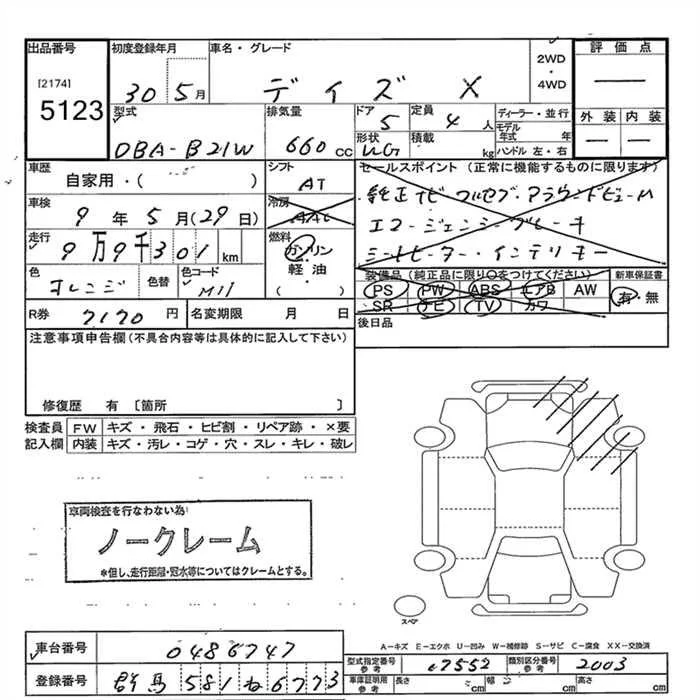 出品番号
[2174]
5123
初度登録年月
30 5月
車名・グレード
デイズ X
2WD
・
4WD
評価点
—
外装 内装
— —
型式
DBA-B21W
排気量
660cc
ドア
5
定員
4人
形状
積載
kg
ディーラー・並行
モデル年式 年
ハンドル 左・右
車歴
自家用・( )
シフト
AT
セールスポイント (正常に機能するものに限ります)
純正ナビ フルセグ・アラウンドビューM
エマージェンシーブレーキ
シートヒーター・インテリキー
車検
9年5月(29日)
冷房
AAC
走行
9万9千301km
燃料
ガソリン
軽油
( )
色
オレンジ
色替
色コード
M11
装備品 (純正品に限り○をつけてください)
PS PW ABS エアB AW
SR ナビ TV カワ
新車保証書
有・無
R券 7170円
名変期限 月 日
後日品
注意事項申告欄(不具合内容等は具体的に記入して下さい)
修復歴 有 [箇所 ]
検査員記入欄
FW キズ・飛石・ヒビ割・リペア跡・×要
内装 キズ・汚レ・コゲ・穴・スレ・キレ・破レ
車両検査を行なわない為:
ノークレーム
*但し、走行距離・冠水等についてはクレームとする。
スペア
A－キズ E－エクボ U－凹み W－補修跡 S－サビ C－腐食 XX－交換済
車台番号 0486747
登録番号 群馬 581 ね 6773
型式指定番号 参考 17552
類別区分番号 参考 2003
車庫証明用 参考 長さ cm 幅 cm 高さ cm